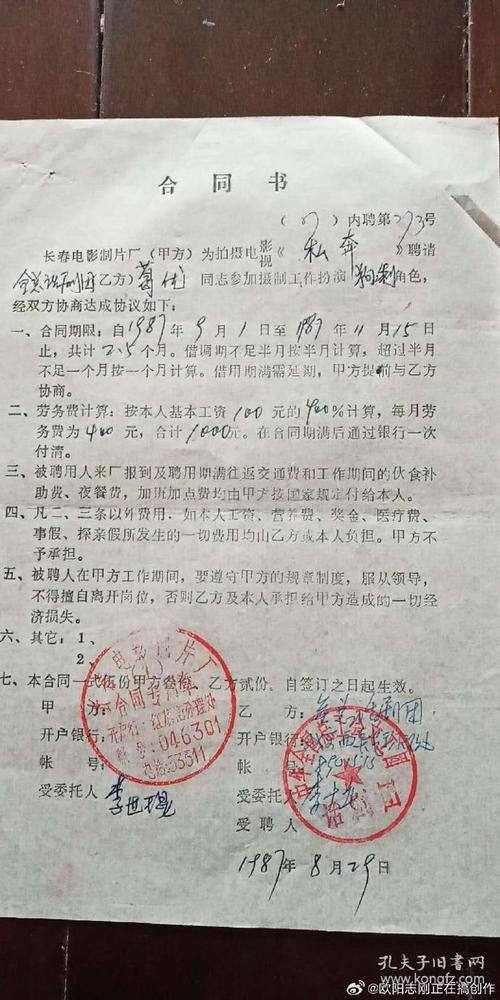 合同书
(87)内聘第273号
长春电影制片厂(甲方)为拍摄电影视《私奔》聘请
全总话剧团(乙方)葛优同志参加摄制工作扮演狗剩角色,
经双方协商达成协议如下:
一、合同期限:自1987年9月1日至1987年11月15日
止,共计2.5个月。借调期不足半月按半月计算,超过半月
不足一个月按一个月计算。借用期满需延期,甲方提前与乙方
协商。
二、劳务费计算:按本人基本工资100元的400%计算,每月劳
务费为400元,合计1000元。在合同期满后通过银行一次
付清。
三、被聘用人来厂报到及聘用期满往返交通费和工作期间的伙食补
助费、夜餐费,加班加点费均由甲方按国家规定付给本人。
四、凡二、三条以外费用,如本人工资、营养费、奖金、医疗费、
事假、探亲假所发生的一切费用均由乙方或本人负担。甲方不
予承担。
五、被聘人在甲方工作期间,要遵守甲方的规章制度,服从领导,
不得擅自离开岗位,否则乙方及本人承担给甲方造成的一切经
济损失。
六、其它:1、
2、
七、本合同一式伍份甲方叁份,乙方贰份,自签订之日起生效。
甲方:
开户银行:
帐号:
受委托人
电影制片厂
合同专用章
046301
电话:53511
乙方:全总话剧团
开户银行:
帐号:
受委托人
受聘人
话剧团
1987年8月29日
孔夫子旧书网
@欧阳志刚正在搞创作